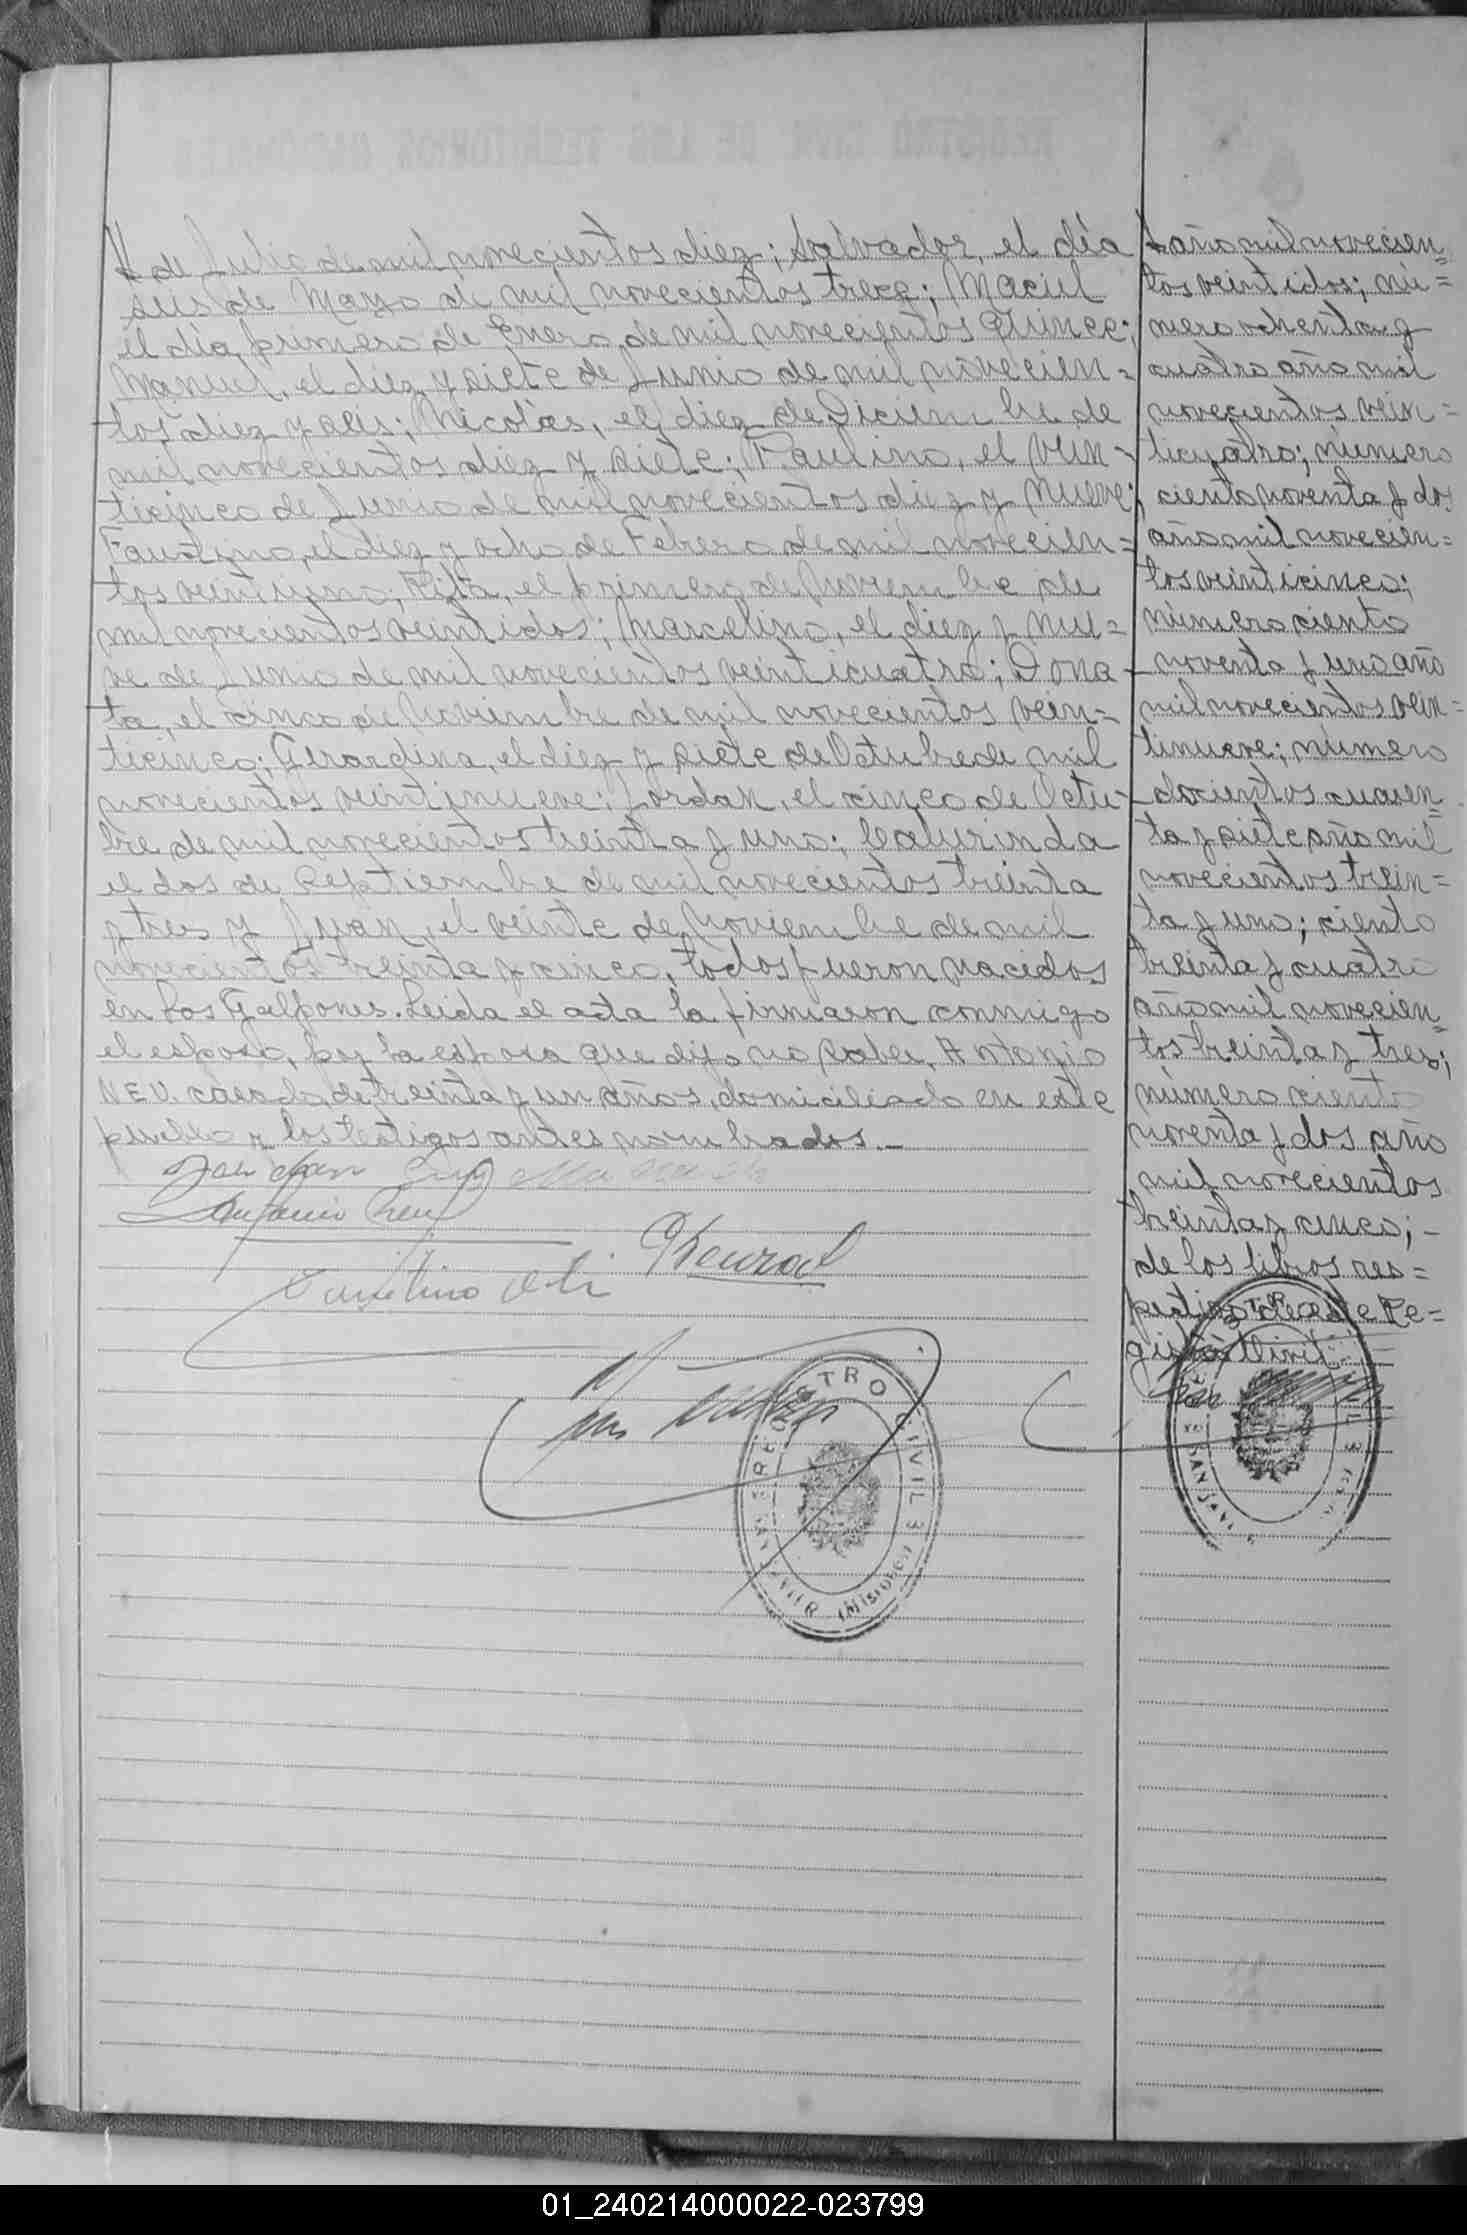 de Julio de mil novecientos diez; Salvador, el día
seis de Mayo de mil novecientos trece; Maciel
el día primero de Enero de mil novecientos quince;
Manuel, el diez y siete de Junio de mil novecien=
tos diez y seis; Nicolás, el diez de Diciembre de
mil novecientos diez y siete; Paulino, el vein-
ticinco de Junio de mil novecientos diez y nueve;
Faustino, el diez y ocho de Febrero de mil novecien=
tos veintiuno; Rita, el primero de Noviembre de
mil novecientos veintidos; Marcelino, el diez y nue=
ve de Junio de mil novecientos veinticuatro; Dona-
ta, el cinco de Noviembre de mil novecientos vein=
ticinco; Gerardina, el diez y siete de Octubre de mil
novecientos veintinueve; Jordan, el cinco de Octu-
bre de mil novecientos treinta y uno;
el dos de Septiembre de mil novecientos treinta
y tres y Juan, el veinte de Noviembre de mil
novecientos treinta y cinco, todos fueron nacidos
en Los Galpones. Leida el acta la firmaron conmigo
el esposo, por la esposa que dijo no saber, Antonio
NEU. casado, de treinta y un años, domiciliado en este
pueblo y los testigos antes nombrados.-
Antonio Neu
año mil novecien=
tos veintidos; nú=
mero ochenta y
cuatro año mil
novecientos vein=
ticuatro; número
ciento noventa y dos
año mil novecien=
tos veinticinco;
número ciento
noventa y uno año
mil novecientos vein=
tinueve; número
docientos cuaren=
ta y siete año mil
novecientos trein=
ta y uno; ciento
treinta y cuatro
año mil novecien=
tos treinta y tres;
número ciento
noventa y dos año
mil novecientos
treinta y cinco;-
de los libros res=
pectivos de este Re=
gistro Civil
REGISTRO CIVIL
SAN JAVIER (MISIONES)
01_240214000022-023799